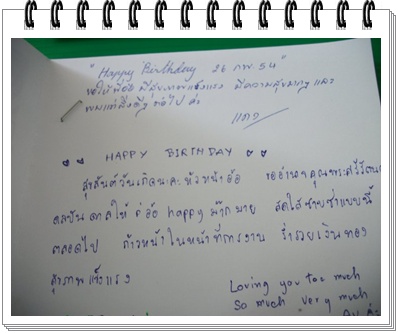 "Happy Birthday 26 กพ. 54"
ขอให้พี่อ้อ มีสุขภาพแข็งแรง มีความสุขมากๆ และ
พบแต่สิ่งดีๆ ต่อไป ค่ะ
HAPPY BIRTHDAY
สุขสันต์วันเกิดนะคะ หัวหน้าอ้อ ขออำนาจคุณพระศรีรัตน
ดลบันดาลให้ พี่อ้อ happy มากมาย สดใสซาบซ่าแบบนี้
ตลอดไป ก้าวหน้าในหน้าที่การงาน ร่ำรวยเงินทอง
สุขภาพแข็งแรง
Loving you too much
So much very much